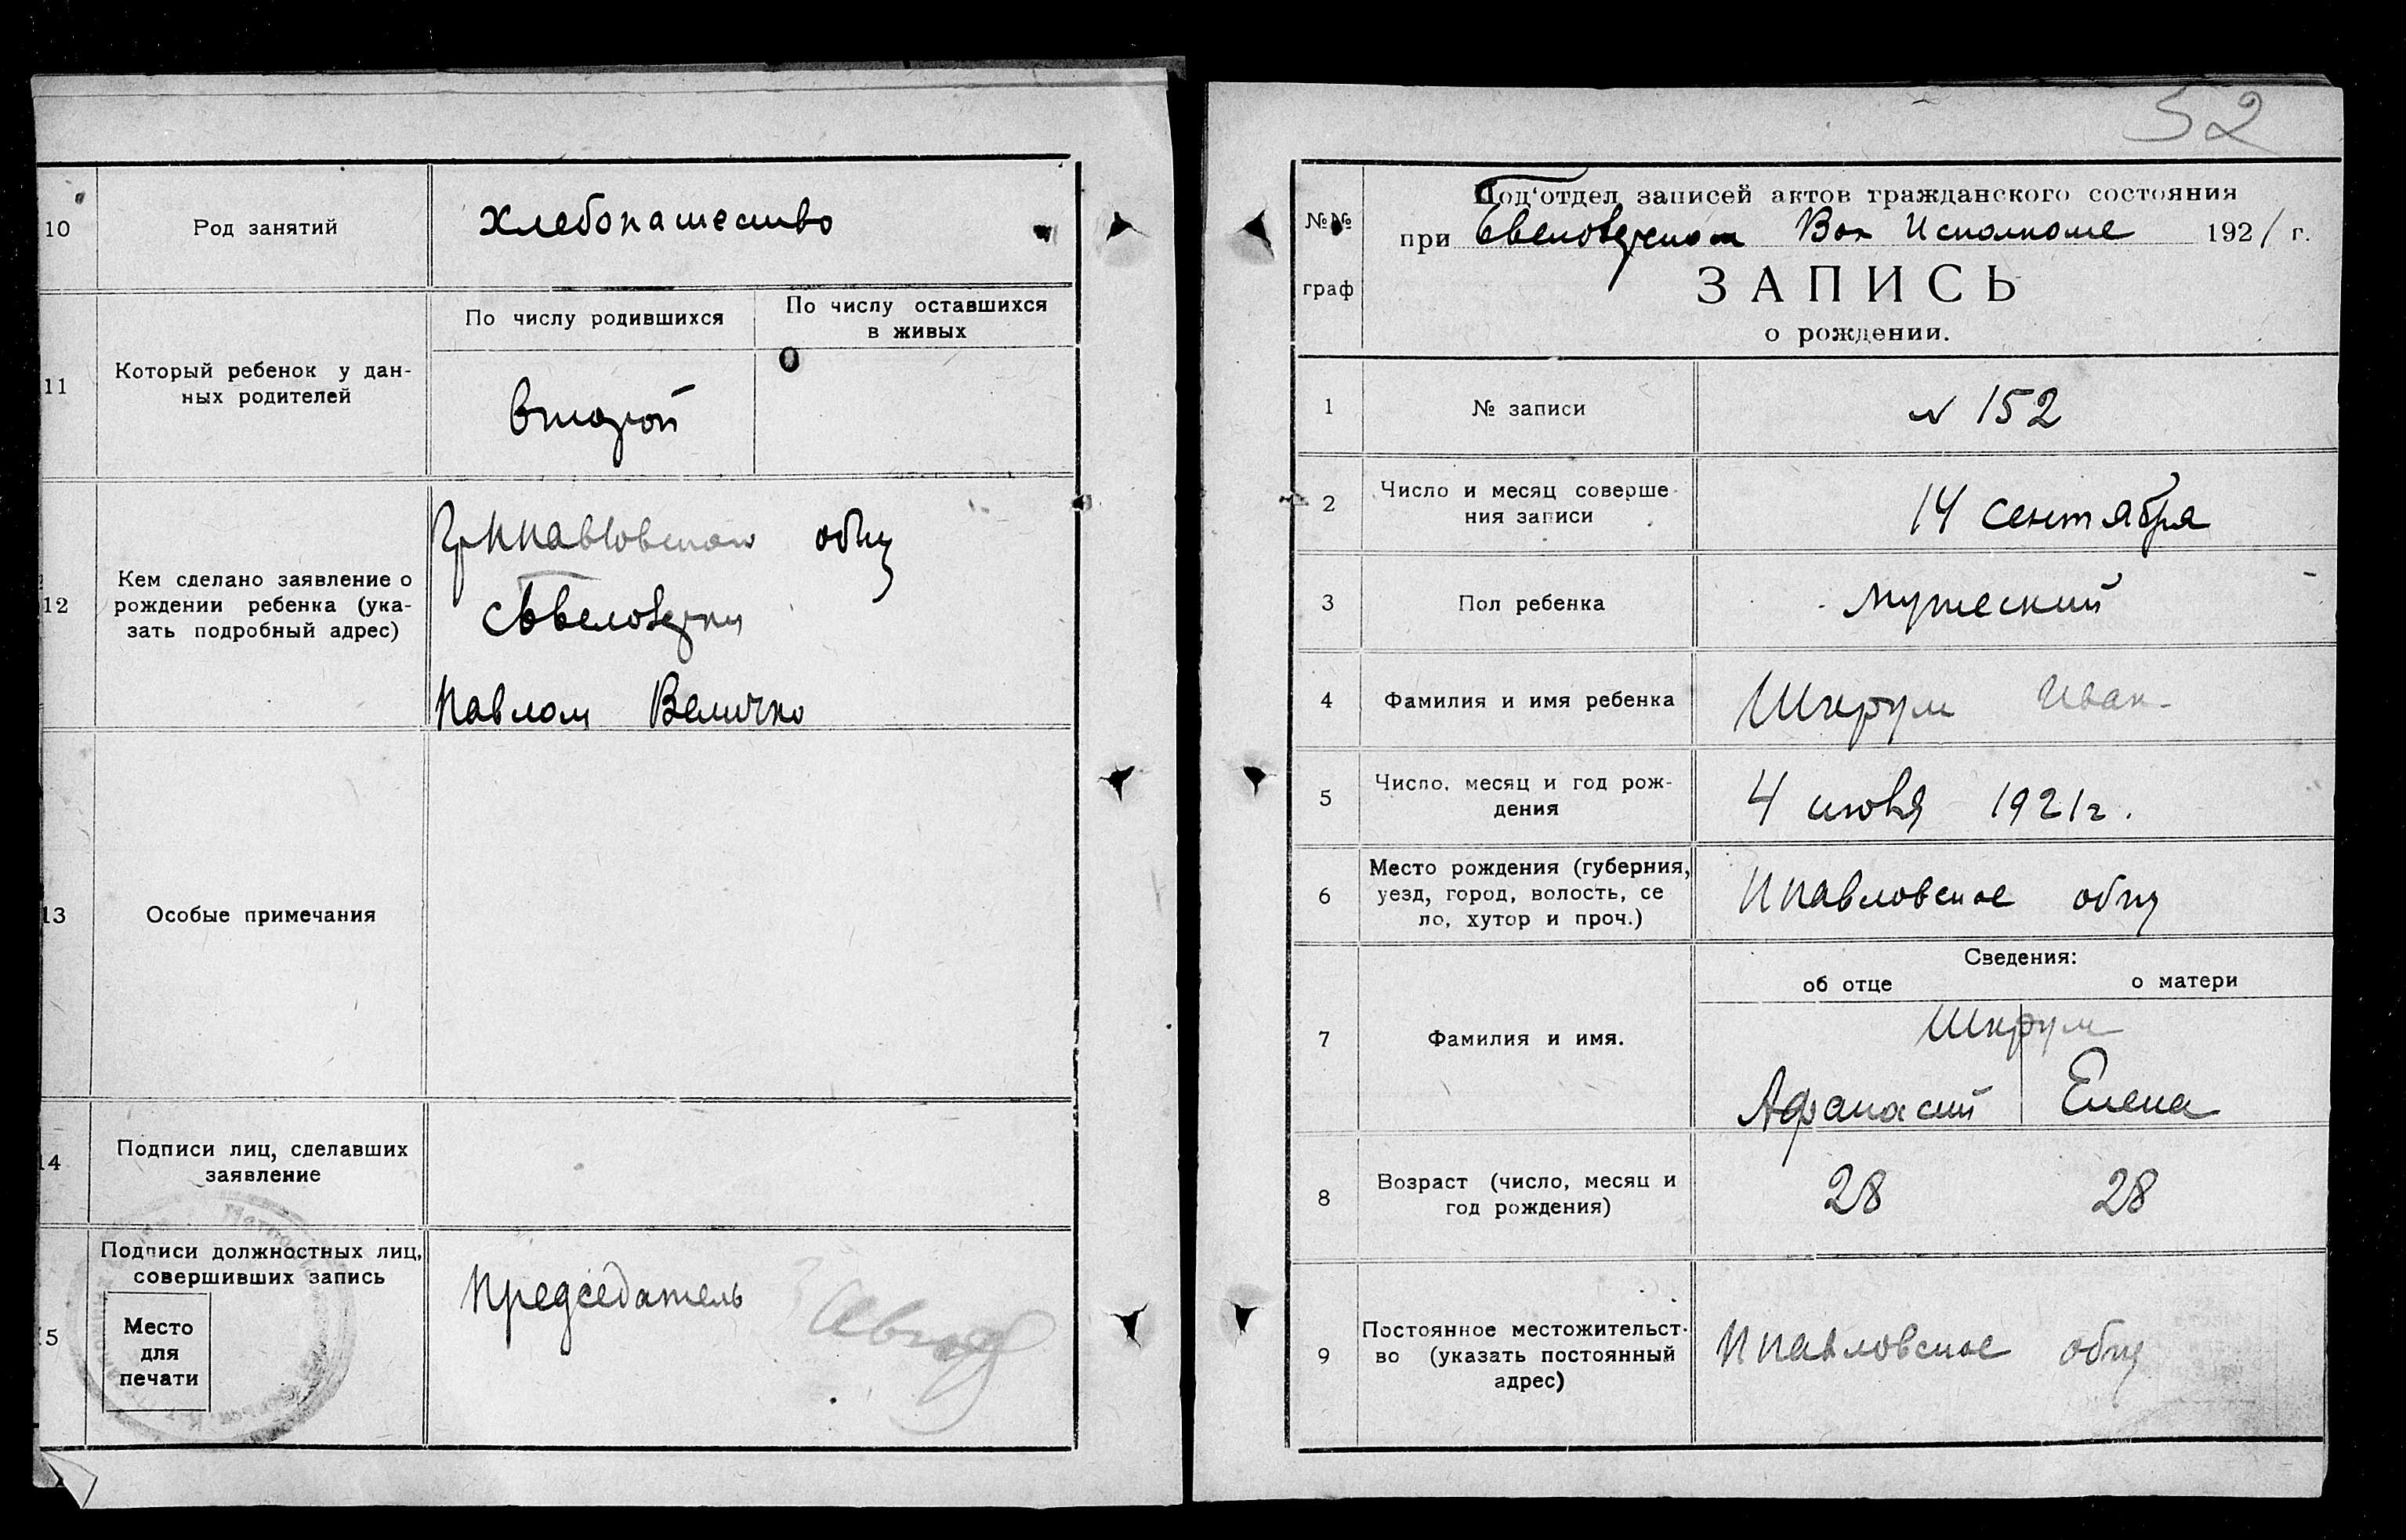 10
Род занятий
хлебопашество
11
Который ребенок у дан-
ных родителей
По числу родившихся
По числу оставшихся
в живых
второй
0
12
Кем сделано заявление о
рождении ребенка (ука-
зать подробный адрес)
общ
Павлом Величко
13
Особые примечания
14
Подписи лиц, сделавших
заявление
15
Подписи должностных лиц,
совершивших запись
Место
для
печати
Председатель
52
№№
граф
Под'отдел записей актов гражданского состояния
при Вол Исполкоме 1921 г.
ЗАПИСЬ
о рождении.
1
№ записи
N 152
2
Число и месяц соверше-
ния записи
14 сентября
3
Пол ребенка
мужеский
4
Фамилия и имя ребенка
Шкрум Иван
5
Число, месяц и год рож-
дения
4 1921 г.
6
Место рождения (губерния,
уезд, город, волость, се
ло, хутор и проч.)
Ппавловское общ
7
Фамилия и имя.
Сведения:
об отце о матери
Шкрум
Афанасий Елена
8
Возраст (число, месяц и
год рождения)
28 28
9
Постоянное местожительст-
во (указать постоянный
адрес)
Ппавловское общ